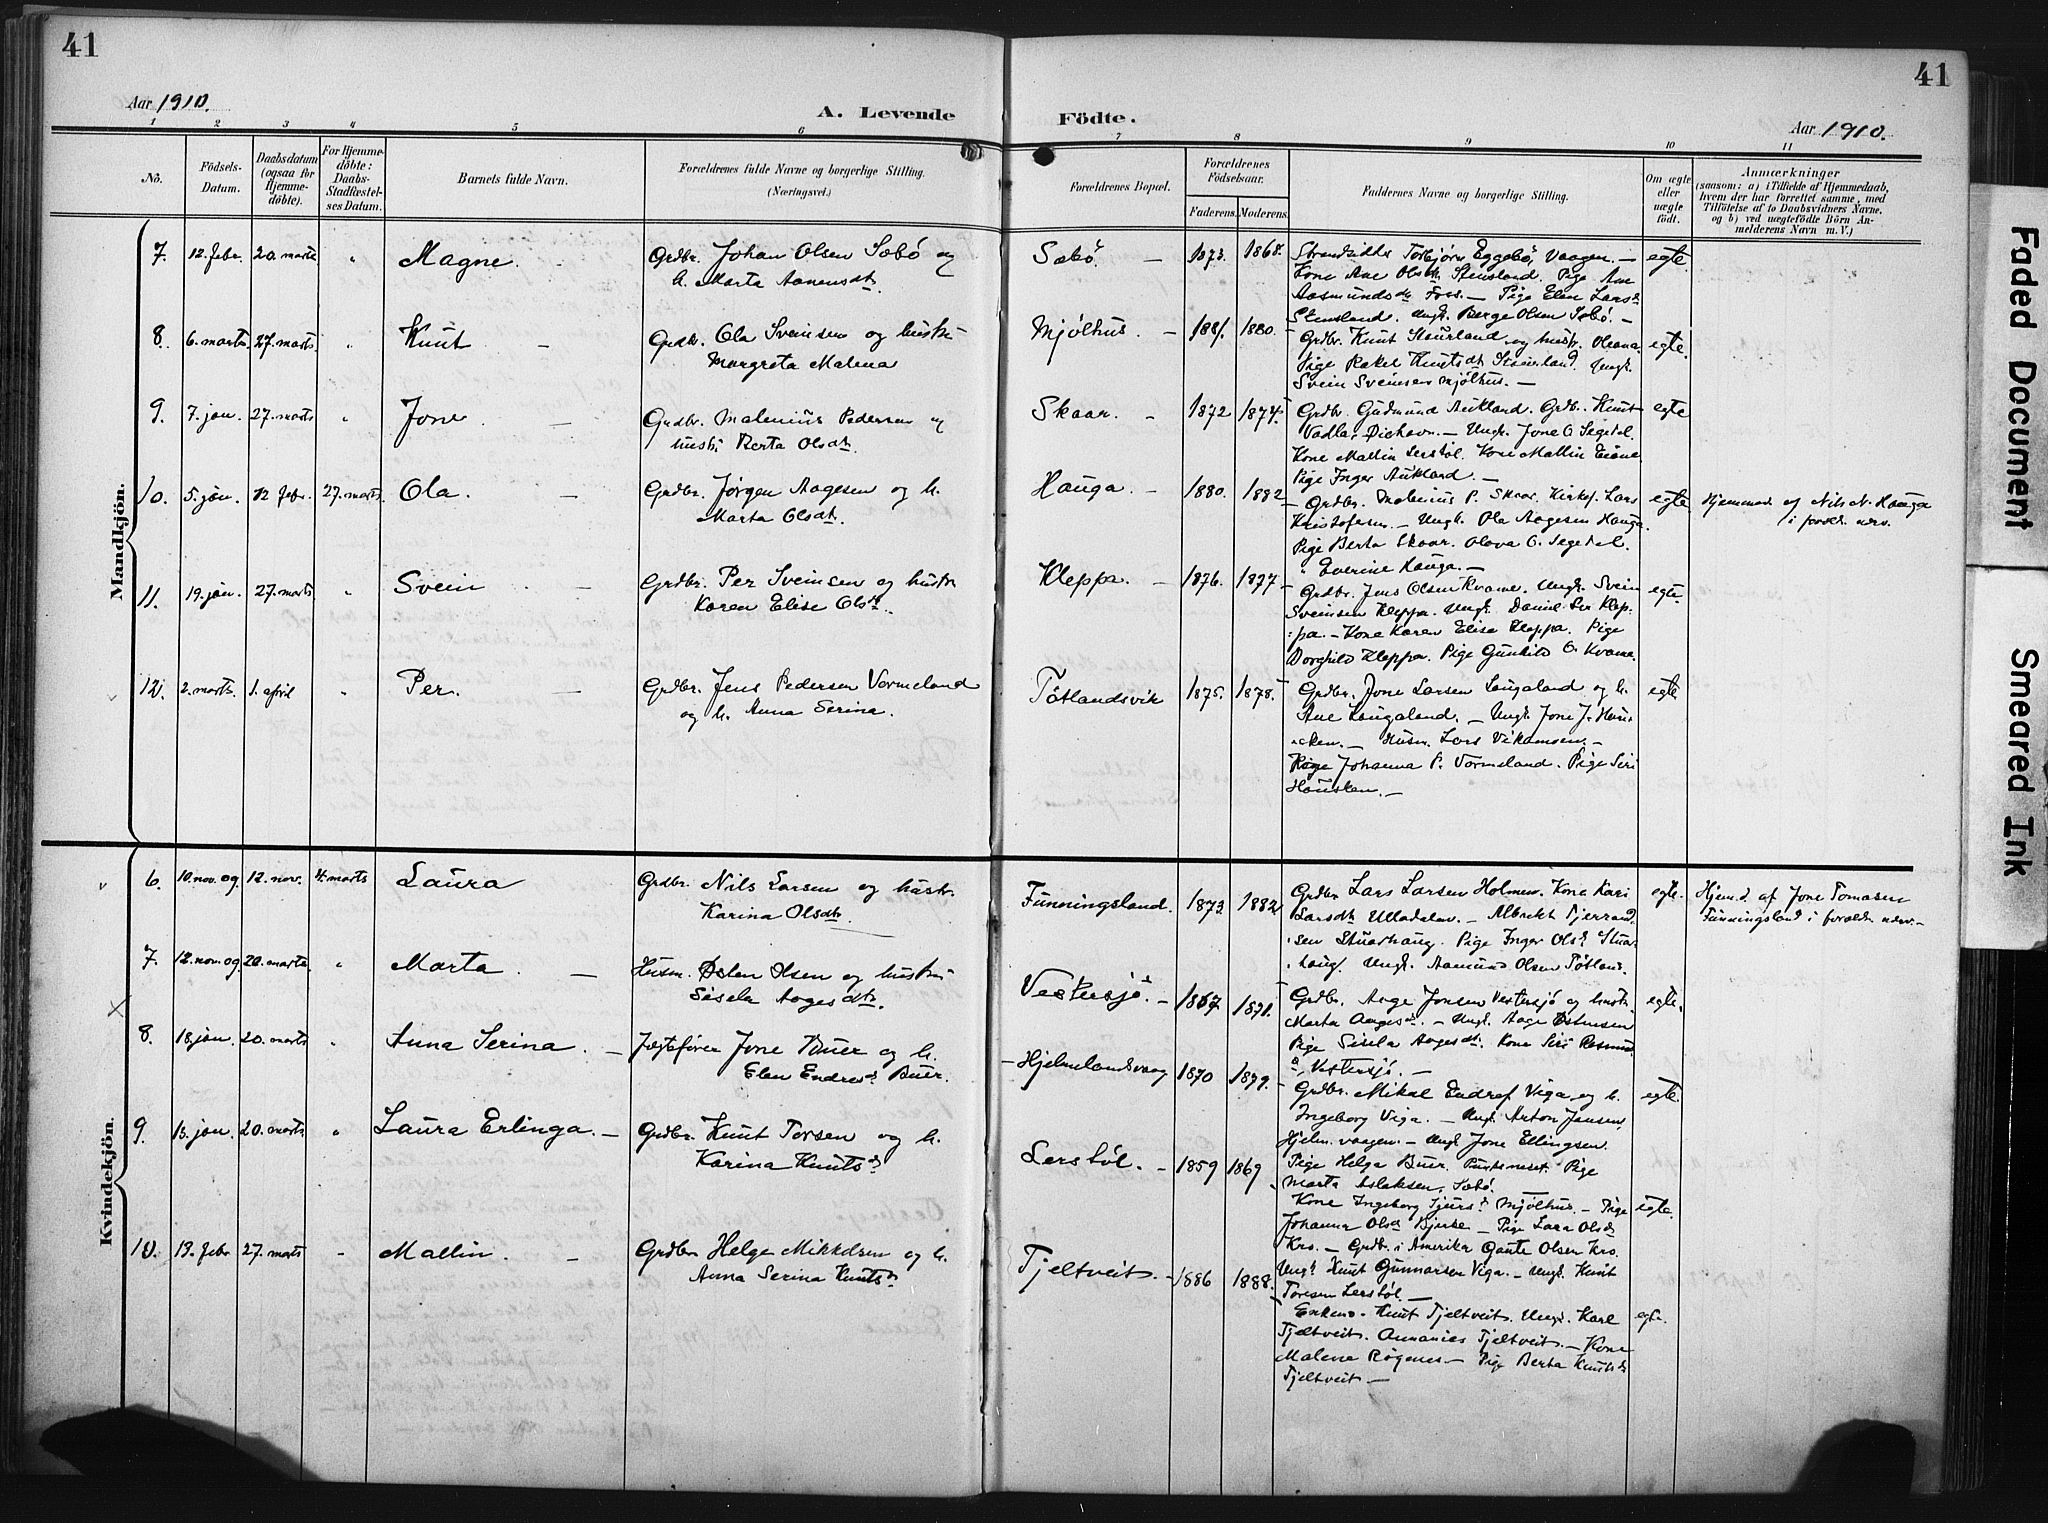 41
41
Aar 1910.
A. Levende
Födte.
Aar 1910.
1 2 3 4 5 6 7 8 9 10 11
No.
Födsels-
Datum.
Daabsdatum
(ogsaa for
Hjemme-
döbte).
For Hjemme-
döbte:
Daabs-
Stadfæstel-
ses Datum.
Barnets fulde Navn.
Forældrenes fulde Navne og borgerlige Stilling.
(Næringsvei.)
Forældrenes Bopæl.
Forældrenes
Födselsaar.
Faderens. Moderens.
Faddernes Navne og borgerlige Stilling.
Om ægte
eller
uægte
födt.
Anmærkninger
(saasom: a) i Tilfælde af Hjemmedaab,
hvem der har forrettet samme, med
Tilföielse af to Daabsvidners Navne,
og b) ved uegtefödte Börn An-
melderens Navn m. V.)
Mandkjön.
7. 12. febr. 20. marts " Magne. Grdbr. Johan Olsen Sæbö og
h. Marta Aanensdtr.
Sæbö. — 1873. 1868.
Strandsidder Torbjörn Eggebö, Vaagen. —
Kone Ane Olsdtr. Stensland. Pige Ane
Aasmundsdtr Foss. — Pige Elen Larsd.
Stensland. Ungk. Børge Olsen Sæbö. —
egte.
8. 6. marts. 27. marts. " Knut — Grdbr. Ola Sveinsen og hustru
Margreta Malena
Mjølhus. — 1881. 1880.
Grdbr. Knut Steurland og husfr. Oleana.
Pige Rakel Knutsdtr Steinsland. Ungk.
Svein Sveinsen Mjølhus. —
egte.
9. 7. jan. 27. marts " Jone. — Grdbr. Malenius Pedersen og
hustr. Berta Olsdtr.
Skaar. — 1872 1874.
Grdbr. Gudmund Aukland. Grdbr. Knut
Vadla, — Ungk. Jone O. Segedal.
Kone Mallin Lerstöl. Kone Mallin Eiane
Pige Inger Aukland. —
egte
10. 5. jan. 12 febr. 27. marts. Ola. — Grdbr. Jørgen Aagesen og h.
Marta Olsdtr.
Hauga. — 1880. 1882
Grdbr. Malenius P. Skaar. Kirkes. Lars
Kristofersen. — Ungk. Ola Aagesen Hauga.
Pige Berta Skaar. Olava O. Segedal.
" Everine Hauga. —
egte. Hjemmed. af Nils N. Hauga
i foræld. nærv.
11. 19. jan. 27. marts. " Svein — Grdbr. Per Sveinsen og hustr.
Karen Elise Olsdtr.
Kleppa. — 1876. 1877
Grdbr. Jens Olsen Kvame. Ungk. Svein
Sveinsen Kleppa. Ungk. Daniel Sv. Klep-
pa. — Kone Karen Elise Kleppa. Pige
Borghild Kleppa. Pige Gunhild O. Kvame.
egte.
12. 2. marts. 1. april " Per. — Grdbr. Jens Pedersen Vormeland
og h. Anna Serina.
Töllandsvik 1875. 1878.
Grdbr. Jone Larsen Laugaland og h.
Ane Laugaland. — Ungk. Jone J. Haus-
ken. — Husm. Lars —
Pige Johanna P. Vormeland. Pige Siri
Hausken. —
egte
Kvindekjön.
6. 10. nov. og 12. nov. 4. marts Laura Grdbr. Nils Larsen og hustr.
Karina Olsdtr.
Funningsland. 1873. 1882
Grdbr. Lars Larsen Holmen. Kone Kari
Larsdtr Ulladalen. — Albrikt Tjerrand-
sen Stuarhaug. Pige Inger Olsd. Stuar-
haug. Ungk. Aamund Olsen Tötland.
egte. Hjem.d. af Jone Tomasen
Funningsland i foræld. nærv. —
7. 12. nov. og 20. marts. " Marta. — Husm. Østen Olsen og hustru
Sisela Aagesdtr.
Vestersjö. — 1867. 1871.
Grdbr. Aage Jonsen Vestersjö og hustr.
Marta Aagesd. — Ungk. Aage Østensen
Pige Sisela Aagesdtr. Kone Siri Rasmus-
d. Vestersjö. —
egte.
8. 18. jan. 20. marts " Anna Serina. — Jægtefører Jone Buer og h.
Elen Endresd. Buer.
— Hjelmelandsvaag 1870 1879.
Grdbr. Mikal Endresf. Viga og h.
Ingeborg Viga. — Ungk. Anton Jansen,
Hjelm. vaagen. — Ungk Jone Ellingsen.
Pige Helga Buer. Puntsnes. Pige
Marta Aslaksen, Sæbö.
egte.
9. 15. jan. 20. marts " Laura Erlinga. — Grdbr. Knut Torsen og h.
Karina Knutsd.
Lerstöl. — 1859 1869
Kone Ingeborg Sjursd. Mjølhus. — Pige
Johanna Olsd Bjerke — Pige Lara Olsd
Kro. — Grdb. i Amerika Gaute Olsen Kro.
Ungk Knut Gunnarsen Viga. — Ungk. Knut
Toresen Lerstöl. —
egte.
10. 19. febr 27. marts " Mallin. — Grdbr Helge Mikkelsen og h.
Anna Serina Knutsd.
Tjeltveit. — 1886 1888.
Enkem. Knut Tjeltveit. Ungk. Karl
Tjeltveit. Annanias Tjeltveit. — Kone
Malene Røgenes — Pige Berta Knutsd
Tjeltveit —
egte.
Faded Document
Smeared Ink